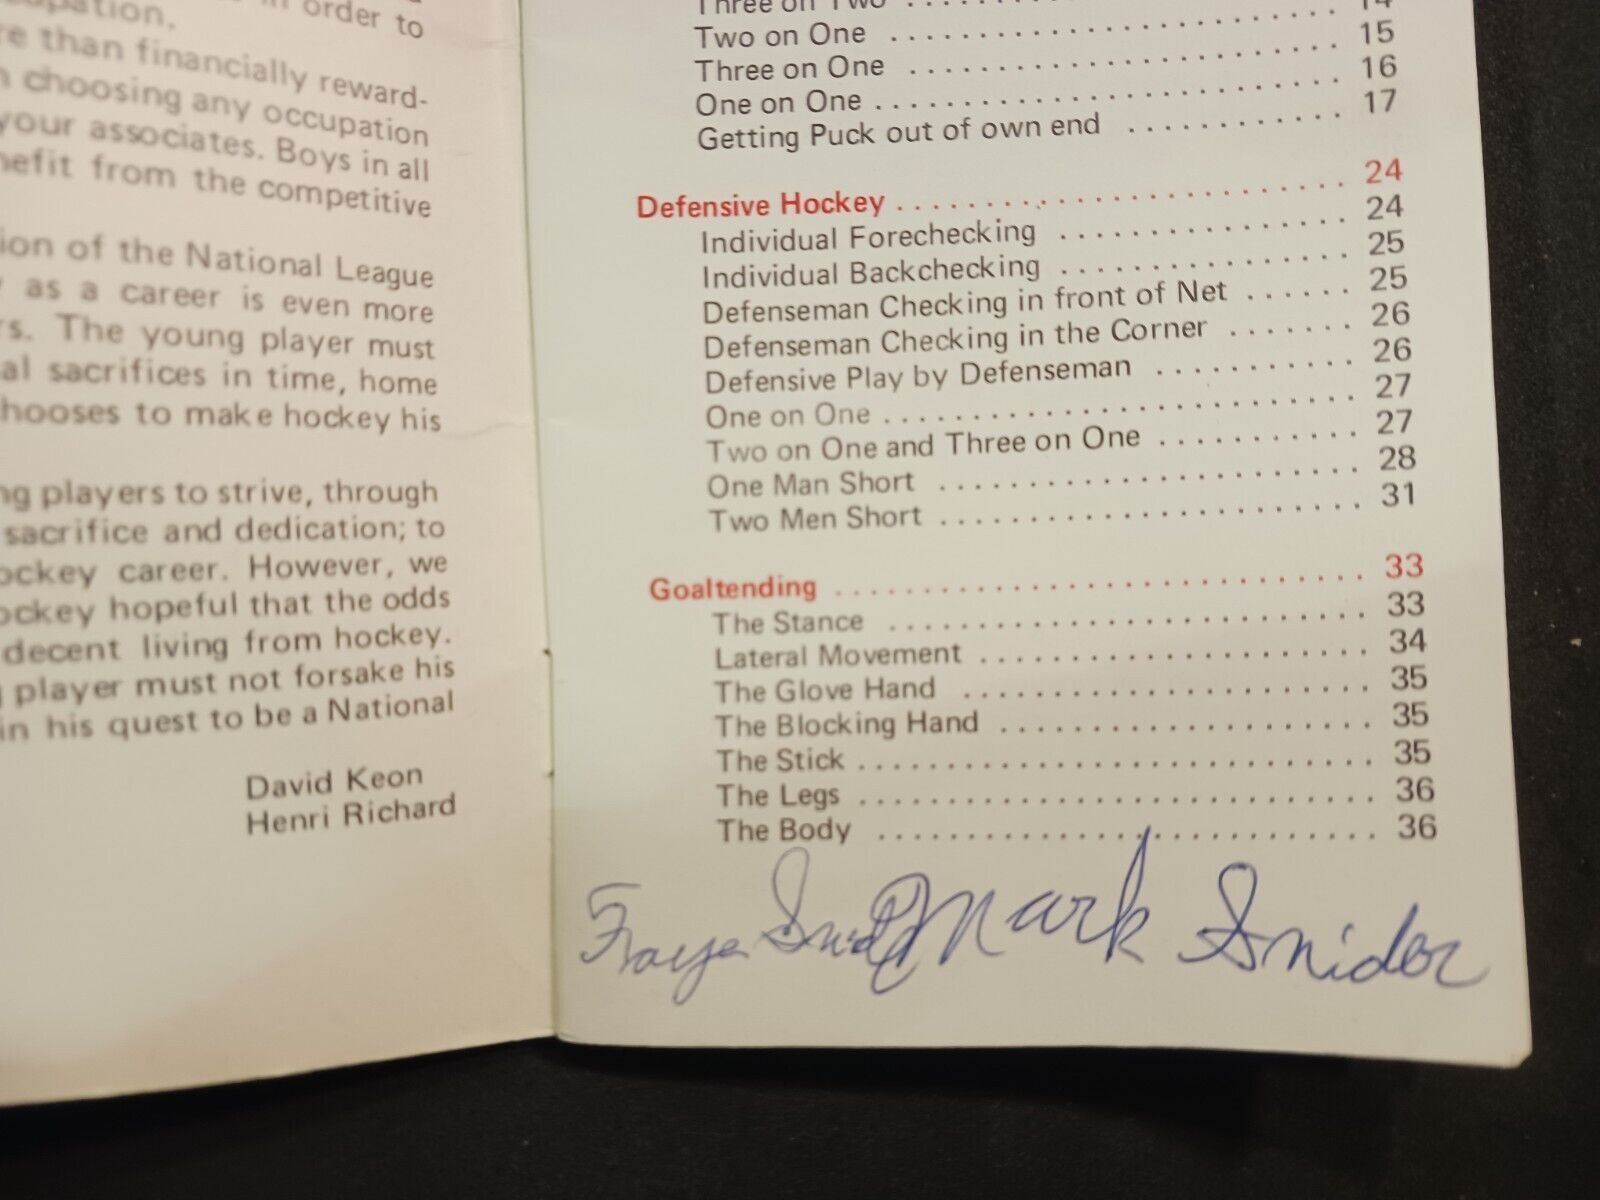 in order to
re than financially reward-
choosing any occupation
your associates. Boys in all
nefit from the competitive
ion of the National League
as a career is even more
rs. The young player must
al sacrifices in time, home
hooses to make hockey his
ng players to strive, through
sacrifice and dedication; to
ockey career. However, we
ockey hopeful that the odds
decent living from hockey.
player must not forsake his
in his quest to be a National
David Keon
Henri Richard
Three on Two . . . 14
Two on One . . . . . . . . . . . . . . . . . . . . . . . . . 15
Three on One . . . . . . . . . . . . . . . . . . . . . . . . 16
One on One . . . . . . . . . . . . . . . . . . . . . . . . . . 17
Getting Puck out of own end . . . . . . . . . . . .
Defensive Hockey . . . . . . . . . . . . . . . . . . . . . . . . . 24
Individual Forechecking . . . . . . . . . . . . . . . . 24
Individual Backchecking . . . . . . . . . . . . . . . . 25
Defenseman Checking in front of Net . . . . . . 25
Defenseman Checking in the Corner . . . . . . . 26
Defensive Play by Defenseman . . . . . . . . . . . 26
One on One . . . . . . . . . . . . . . . . . . . . . . . . . . 27
Two on One and Three on One . . . . . . . . . . . 27
One Man Short . . . . . . . . . . . . . . . . . . . . . . . 28
Two Men Short . . . . . . . . . . . . . . . . . . . . . . . 31
Goaltending . . . . . . . . . . . . . . . . . . . . . . . . . . . . . 33
The Stance . . . . . . . . . . . . . . . . . . . . . . . . . . 33
Lateral Movement . . . . . . . . . . . . . . . . . . . . . 34
The Glove Hand . . . . . . . . . . . . . . . . . . . . . . 35
The Blocking Hand . . . . . . . . . . . . . . . . . . . . 35
The Stick . . . . . . . . . . . . . . . . . . . . . . . . . . . . 35
The Legs . . . . . . . . . . . . . . . . . . . . . . . . . . . . 36
The Body . . . . . . . . . . . . . . . . . . . . . . . . . . . 36
Mark Snider